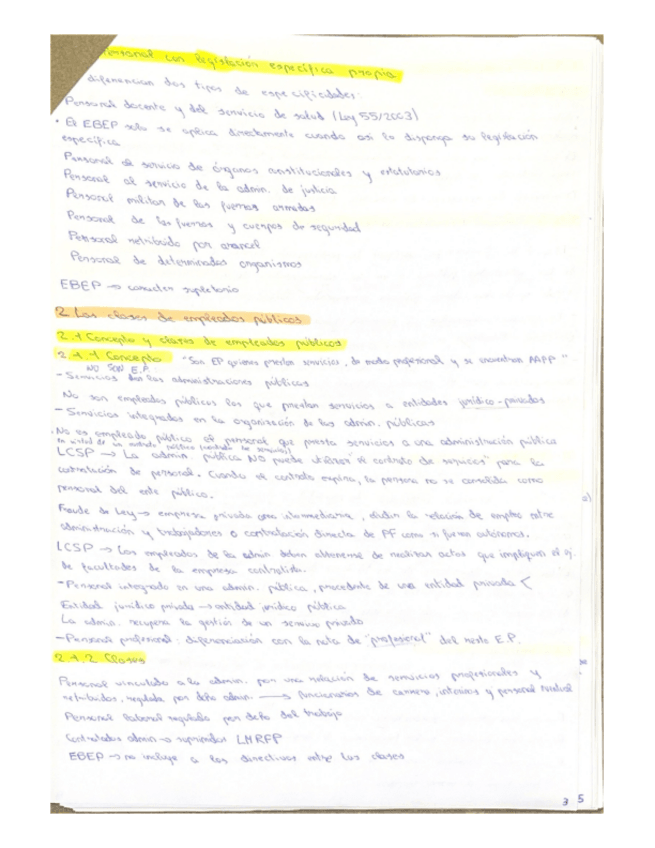 Personal con legislación específica propia
diferencian dos tipos de especificidades:
Personal docente y del servicio de salud (Ley 55/2003)
• El EBEP solo se aplica directamente cuando así lo disponga su legislación
específica
Personal al servicio de órganos constitucionales y estatutarios
Personal al servicio de la admin. de justicia
Personal militar de las fuerzas armadas
Personal de las fuerzas y cuerpos de seguridad
Personal retribuido por arancel
Personal de determinados organismos
EBEP → carácter supletorio
2. Las clases de empleados públicos
2.1 Concepto y clases de empleados públicos
2.1.1 Concepto "Son EP quienes prestan servicios, de modo profesional y se encuentran AAPP"
NO SON E.P.
- Servicios las administraciones públicas
No son empleados públicos los que prestan servicios a entidades jurídico-privadas
- Servicios integrados en la organización de las admin. públicas
No es empleado público el personal que presta servicios a una administración pública
en virtud de un contrato público (contrato de servicios)
LCSP → La admin. pública NO puede utilizar "el contrato de servicios" para la
contratación de personal. Cuando el contrato expira, la persona no se consolida como
personal del ente público.
Fraude de Ley → empresa privada como intermediaria, eludir la relación de empleo entre
administración y trabajadores o contratación directa de PF como si fueran autónomos.
LCSP → Los empleados de la admin deben abstenerse de realizar actos que impliquen el ej.
de facultades de la empresa contratista.
- Personal integrado en una admin. pública, procedente de una entidad privada <
Entidad jurídico privada → entidad jurídico pública
La admin. recupera la gestión de un servicio privado
- Personal profesional: diferenciación con la nota de "profesional" del resto E.P.
2.1.2 Clases
Personal vinculado a la admin. por una relación de servicios profesionales y
retribuidos, regulada por dcho admin. → funcionarios de carrera, interinos y personal eventual
Personal laboral regulado por dcho del trabajo
Contratados admin → suprimidos LMRFP
EBEP → no incluye a los directivos entre las clases
3 5